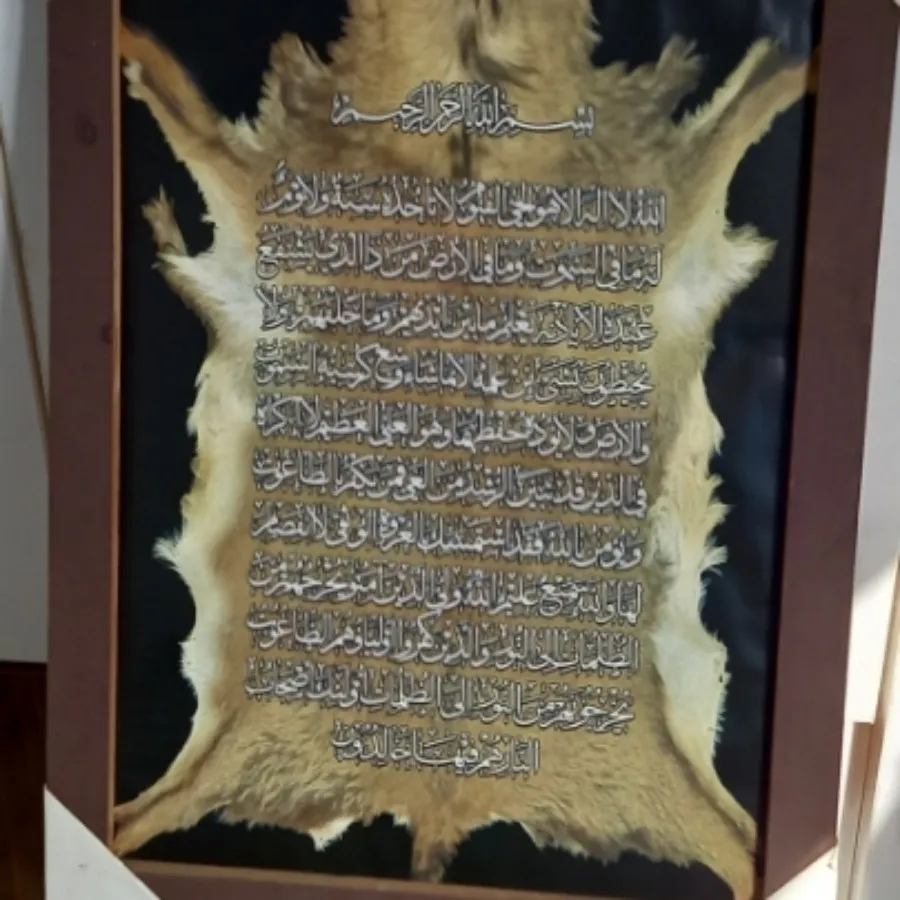 بسم الله الرحمن الرحيم
الله لا اله الا هو الحي القيوم لا تاخذه سنة ولا نوم
له ما في السموت وما في الارض من ذا الذي يشفع
عنده الا باذنه يعلم ما بين ايديهم وما خلفهم ولا
يحيطون بشيء من علمه الا بما شاء وسع كرسيه السموت
والارض ولا يوده حفظهما وهو العلي العظيم لا اكراه
في الدين قد تبين الرشد من الغي فمن يكفر الطاغوت
ويؤمن بالله فقد استمسك بالعروة الوثقى لا انفصام
لها والله سميع عليم الله ولي الذين امنو يخرجهم من
الظلمات الى النور والذين كفروا اولياوهم الطاغوت
يخرجونهم من النور الى الظلمات اولئك اصحاب
النار هم فيها خالدون